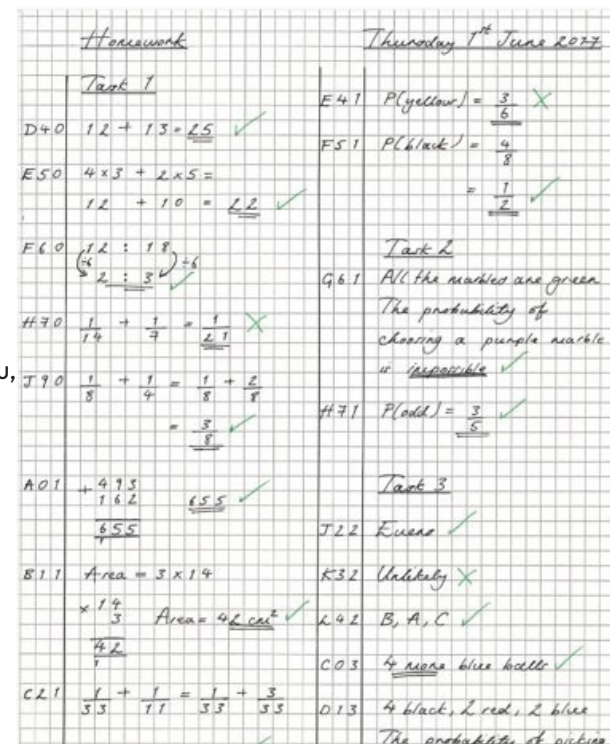 Homework
Thursday 1st June 2077
Task 1
D40 12 + 13 = 25 ✓
E50 4 × 3 + 2 × 5 =
12 + 10 = 22 ✓
F60 12 : 18
÷6 ÷6
2 : 3 ✓
H70 1/14 + 1/7 = 1/21 ✗
J90 1/8 + 1/4 = 1/8 + 2/8
= 3/8 ✓
A01 + 493
162 655 ✓
655
1
B11 Area = 3 × 14
× 14
3 Area = 42 cm² ✓
42
1
C21 1/33 + 1/11 = 1/33 + 3/33
E41 P(yellow) = 3/6 ✗
F51 P(black) = 4/8
= 1/2 ✓
Task 2
G61 All the marbles are green
The probability of
choosing a purple marble
is impossible ✓
H71 P(odd) = 3/5 ✓
Task 3
J22 Evens ✓
K32 Unlikely ✗
L42 B, A, C ✓
C03 4 more blue balls ✓
D13 4 black, 2 red, 2 blue
The probability of picking